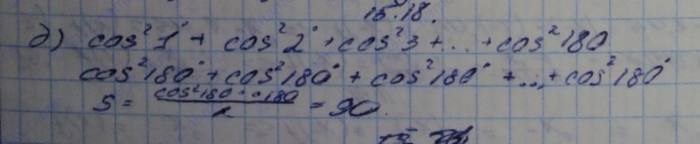 15.18.
д) cos²1° + cos²2° + cos²3 + ... + cos²180
cos²180° + cos²180° + cos²180° + ... + cos²180°
S = cos²180 · 180 / 2 = 90